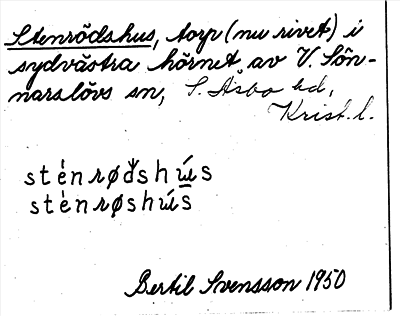 Stenrödshus, torp (nu rivet) i
sydvästra hörnet av V. Sön-
narslövs sn, S. Åsbo hd,
Krist. l.
sténrød̆shú̱s
sténrøshú̱s
Bertil Svensson 1950